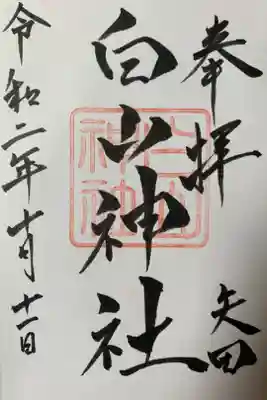 奉拝
矢田
白山神社
令和二年十月十一日